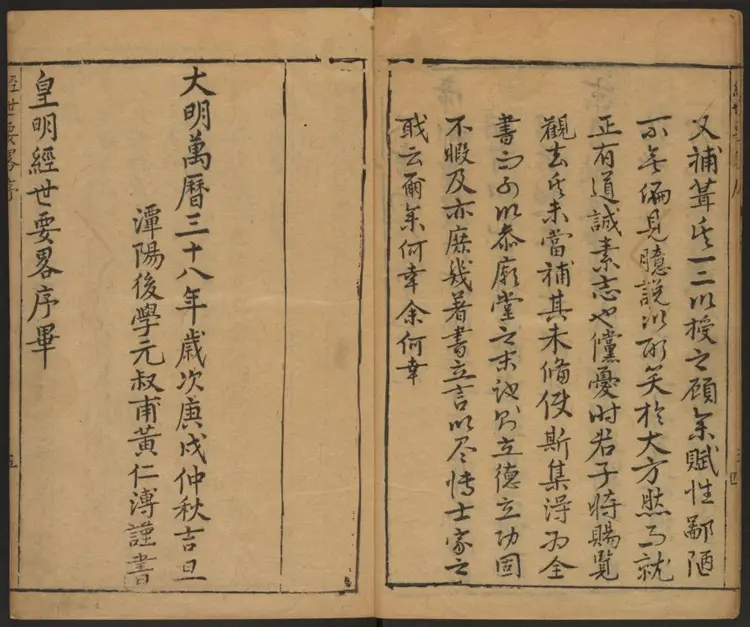 又補葺其一二以授之顧余賦性鄙陋
不無偏見臆說以取笑於大方然而就
正有道誠素志也儻憂时君子特賜覧
觀去其未當補其未備使斯集淂为全
書而以恭廟堂之末議则立德立功固
不暇及亦庶幾著書立言以尽博士家之
職云爾余何幸余何幸
大明萬曆三十八年歲次庚戌仲秋吉旦
潭陽後學元叔甫黃仁溥謹書
皇明經世要畧序畢
經世要畧序
五